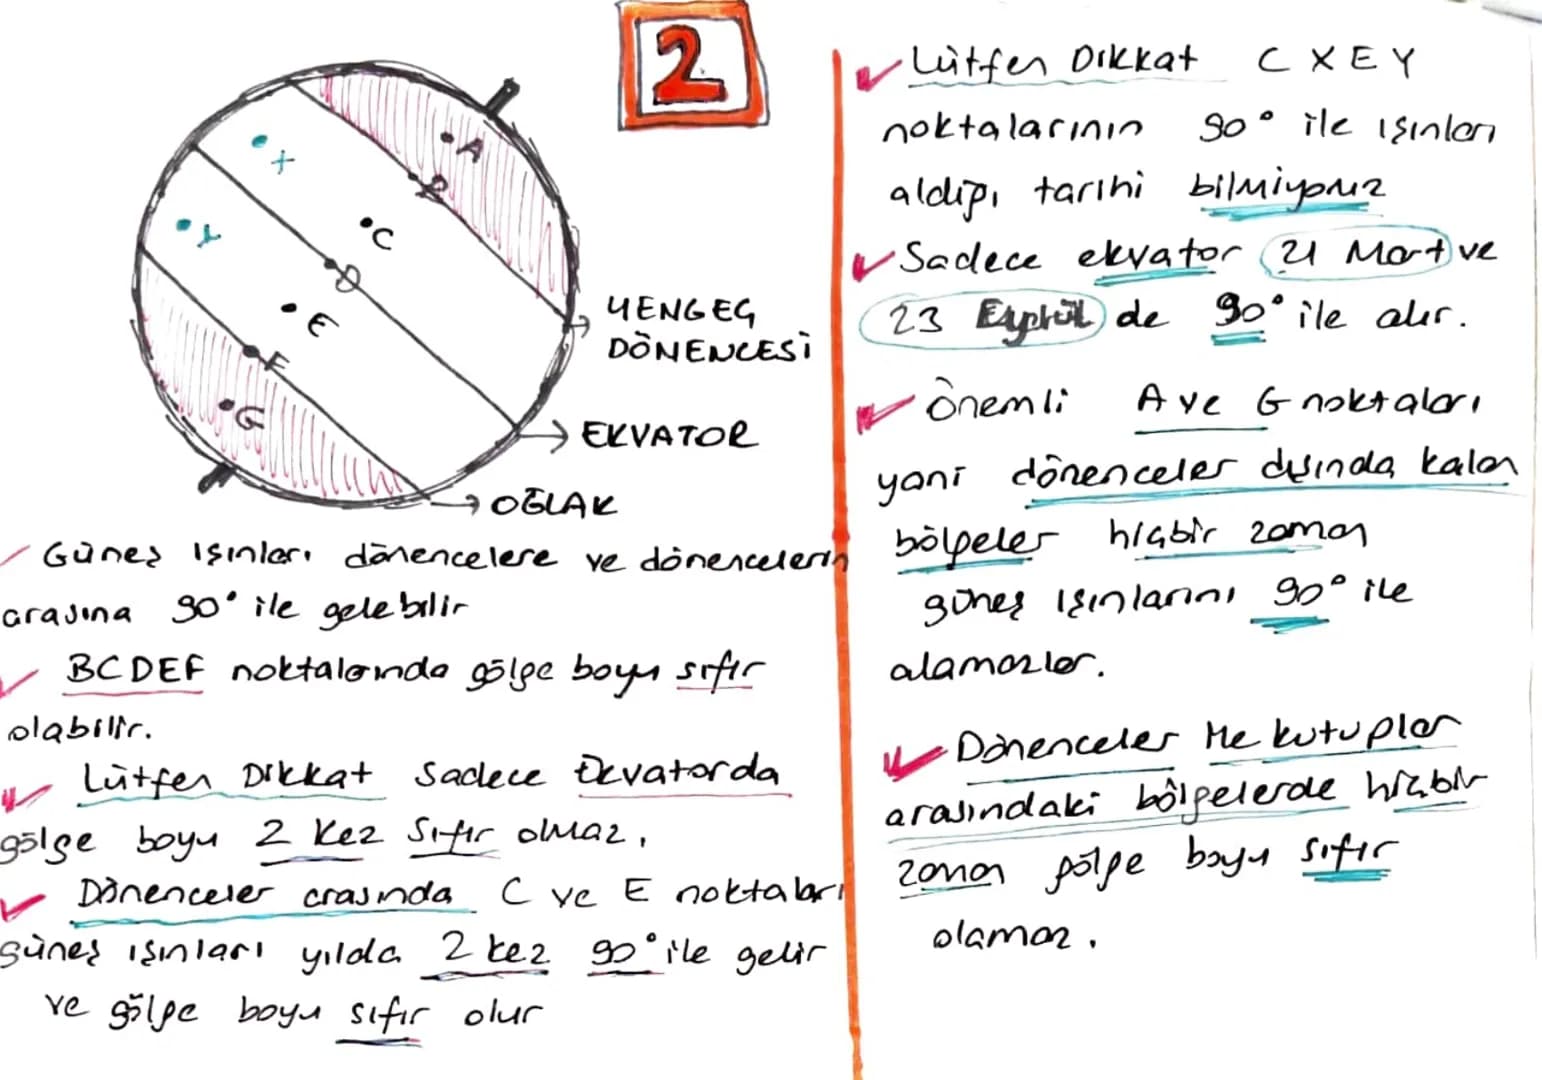 2
A
B
X
C
Y
D
E
F
G
YENGEÇ
DÖNENCESİ
EKVATOR
OĞLAK
Güneş ışınları dönencelere ve dönencelerin
arasına 90° ile gelebilir
BCDEF noktalarında gölge boyu sıfır
olabilir.
Lütfen Dikkat Sadece Ekvatorda
gölge boyu 2 kez sıfır olmaz.
Dönenceler arasında C ve E noktaları
güneş ışınları yılda 2 kez 90° ile gelir
ve gölge boyu sıfır olur
Lütfen Dikkat C X E Y
noktalarının 90° ile ışınları
aldığı tarihi bilmiyoruz
Sadece ekvator 21 Mart ve
23 Eylül de 90° ile alır.
Önemli A ve G noktaları
yani dönenceler dışında kalan
bölgeler hiçbir zaman
güneş ışınlarını 90° ile
alamazlar.
Dönenceler ile kutuplar
arasındaki bölgelerde hiçbir
zaman gölge boyu sıfır
olamaz.